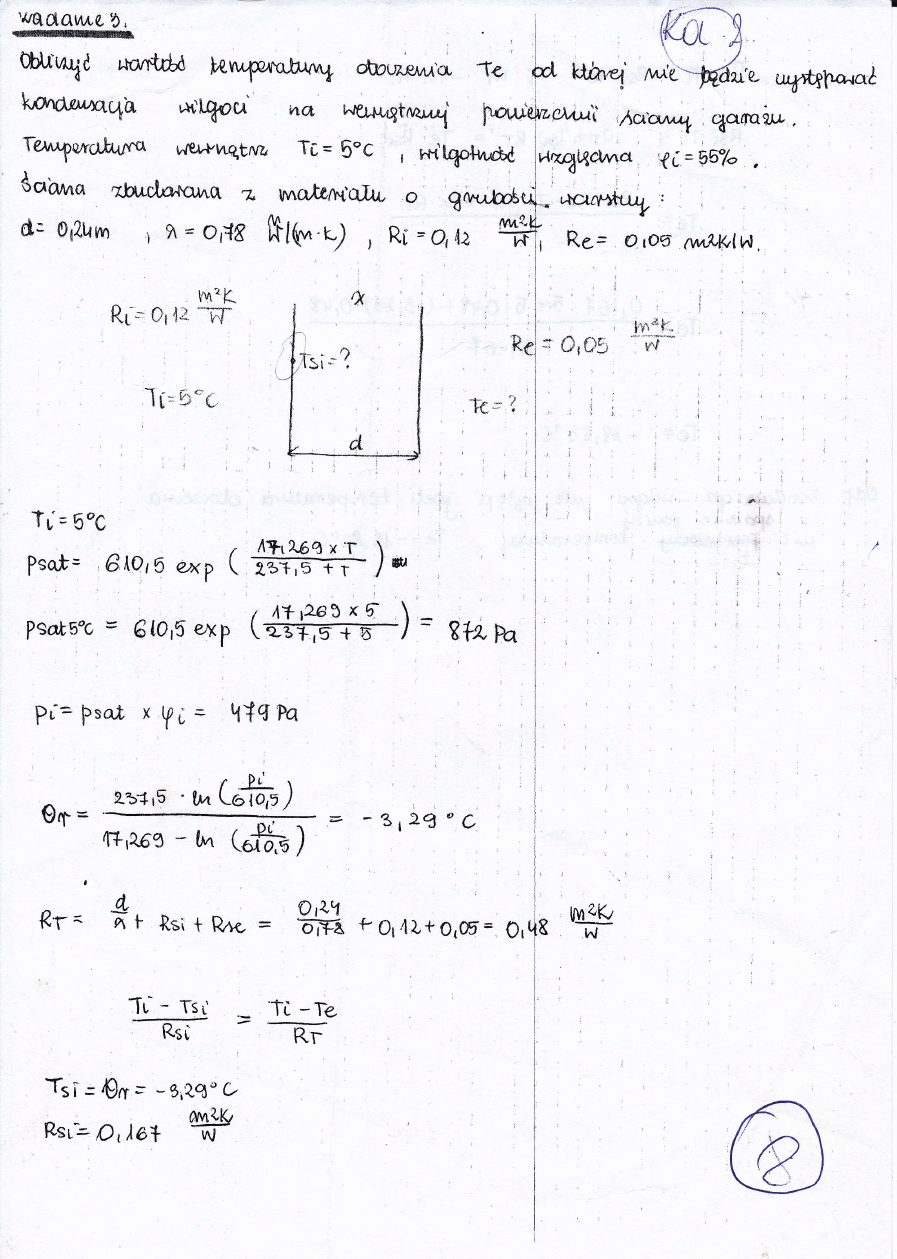 Zadanie 3.
Ka. 2
Obliczyć wartość temperatury otoczenia Te od której nie będzie występować
kondensacja wilgoci na wewnętrznej powierzchni ściany garażu.
Temperatura wewnątrz Ti = 5°C , wilgotność względna φi = 55% .
Ściana zbudowana z materiału o grubości warstwy :
d = 0,24m , λ = 0,78 W/(m·k) , Ri = 0,12 m2K/W , Re = 0,05 m2K/W.
Ri = 0,12 m2K/W
x
Re = 0,05 m2K/W
Tsi = ?
Ti = 5°C
Te = ?
d
Ti = 5°C
Psat = 610,5 exp ( 17,269 x T / 237,5 + T )
Psat 5°C = 610,5 exp ( 17,269 x 5 / 237,5 + 5 ) = 872 Pa
Pi = psat x φi = 479 Pa
θr = 237,5 · ln (pi/610,5) / 17,269 - ln (pi/610,5) = -3,29°C
RT = d/λ + Rsi + Rse = 0,24/0,78 + 0,12 + 0,05 = 0,48 m2K/W
Ti - Tsi / Rsi = Ti - Te / RT
Tsi = θr = -3,29°C
Rsi = 0,167 m2K/W
8